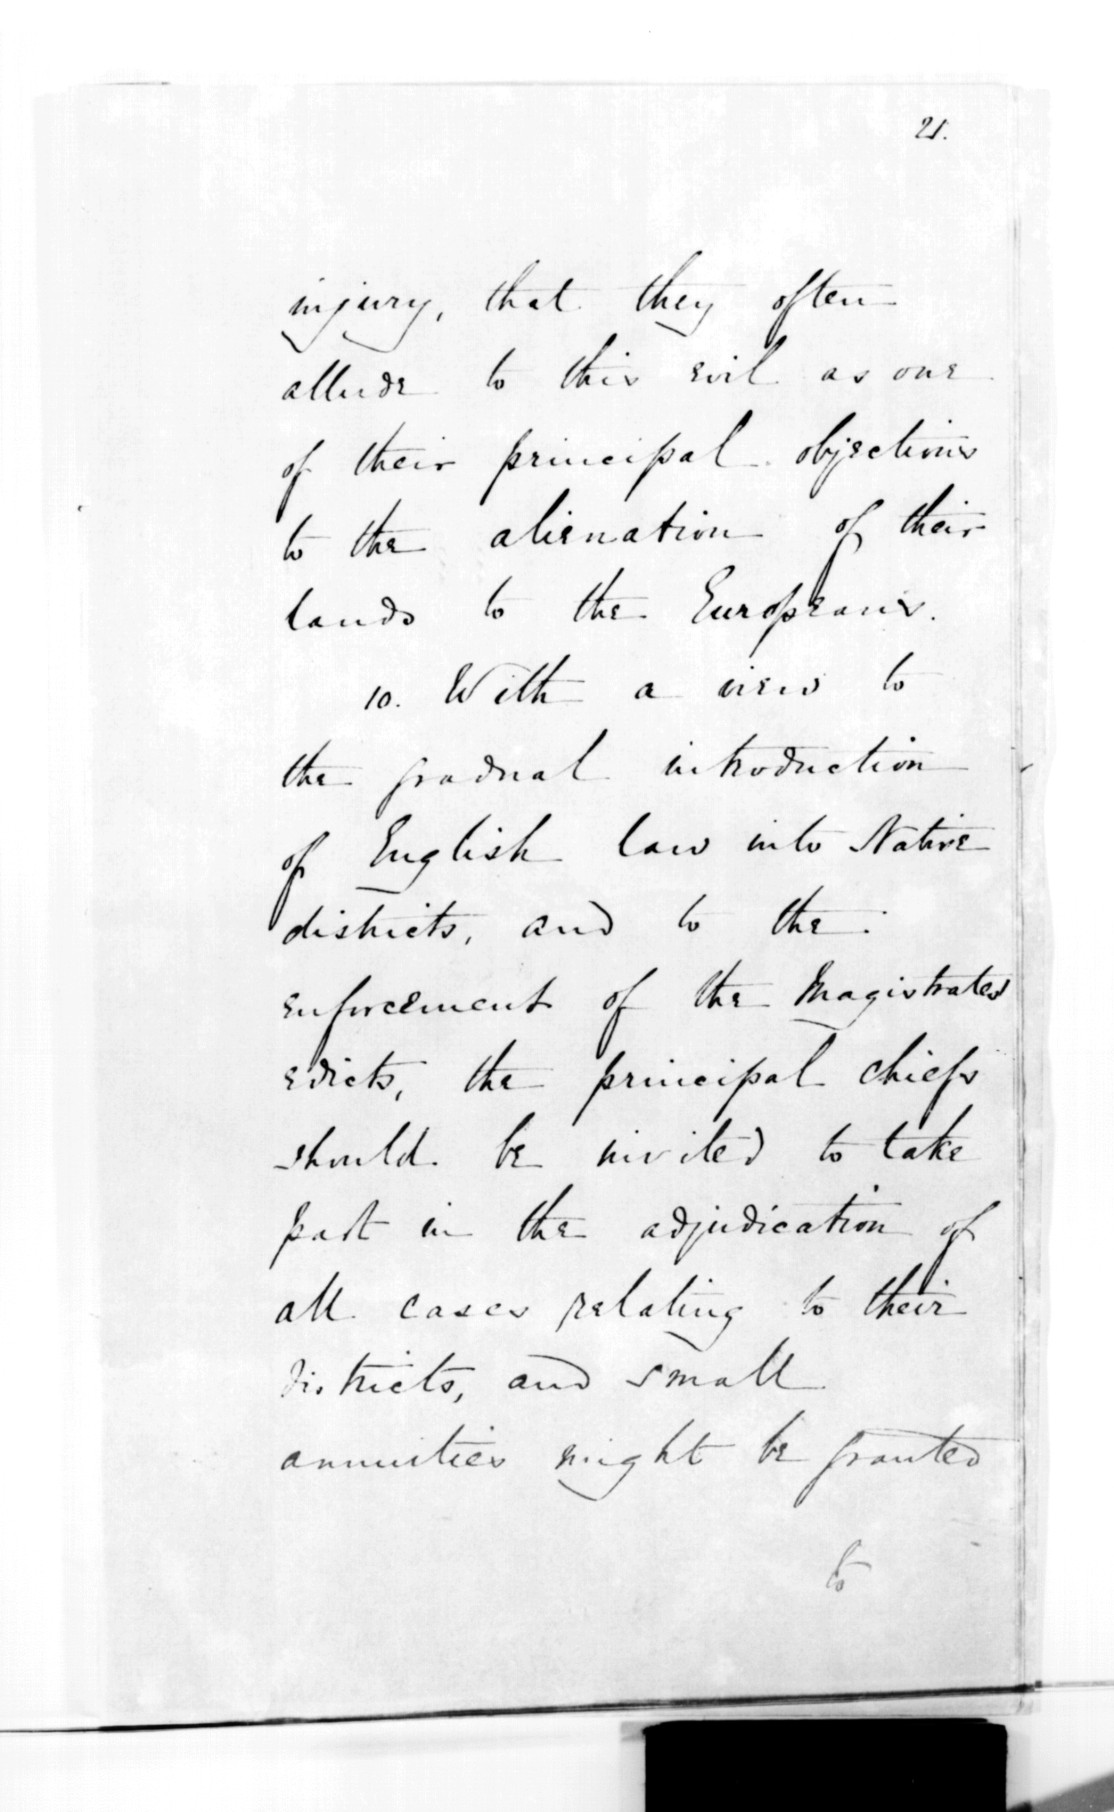 21.
injury, that they often
allude to this evil as one
of their principal objections
to the alienation of their
lands to the Europeans.
10. With a view to
the gradual introduction
of English law into Native
districts, and to the
enforcement of the Magistrates
edicts, the principal chiefs
should be invited to take
part in the adjudication of
all cases relating to their
districts, and small
annuities might be granted
to